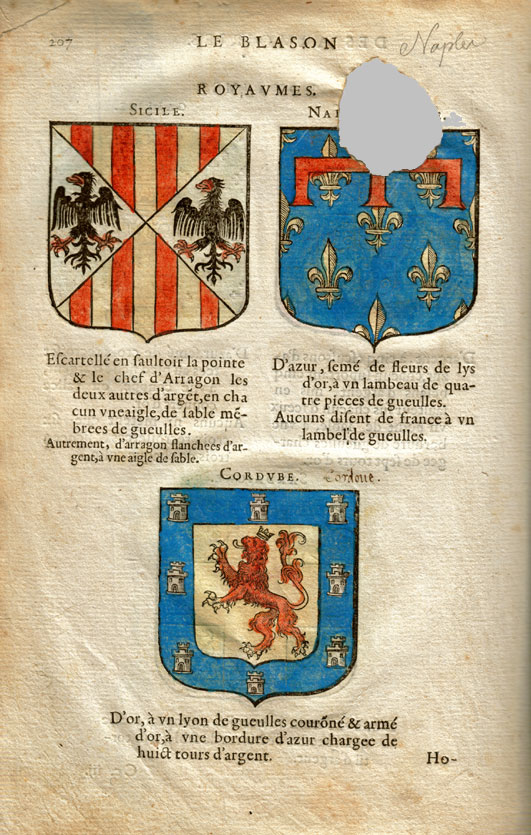 207 LE BLASON Naples
ROYAVMES.
SICILE.
Escartellé en saultoir la pointe
& le chef d'Arragon les
deux autres d'argēt, en cha
cun vne aigle, de sable mē-
brees de gueulles.
Autrement, d'arragon flanchees d'ar-
gent, à vne aigle de sable.
D'azur, semé de fleurs de lys
d'or, à vn lambeau de qua-
tre pieces de gueulles.
Aucuns disent de france à vn
lambel de gueulles.
CORDVBE. Cordoue.
D'or, à vn lyon de gueulles courōné & armé
d'or, à vne bordure d'azur chargee de
huict tours d'argent. Ho-